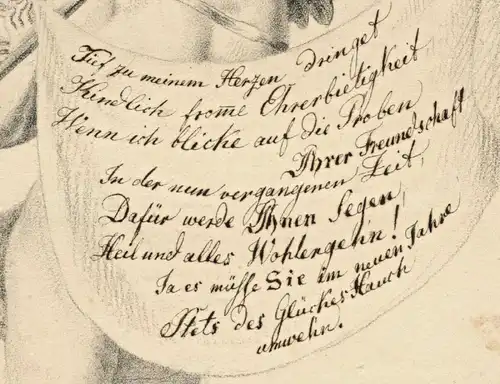 Tief zu meinem Herzen dringet
Kindlich from̅e Ehrerbietigkeit,
Wenn ich blicke auf die Proben
Ihrer Freundschaft
In der nun vergangenen Zeit,
Dafür werde Ihnen Segen,
Heil und alles Wohlergehn!
Ja es müsse Sie im neuen Jahre
Stets des Glückes Hauch
umwehn.